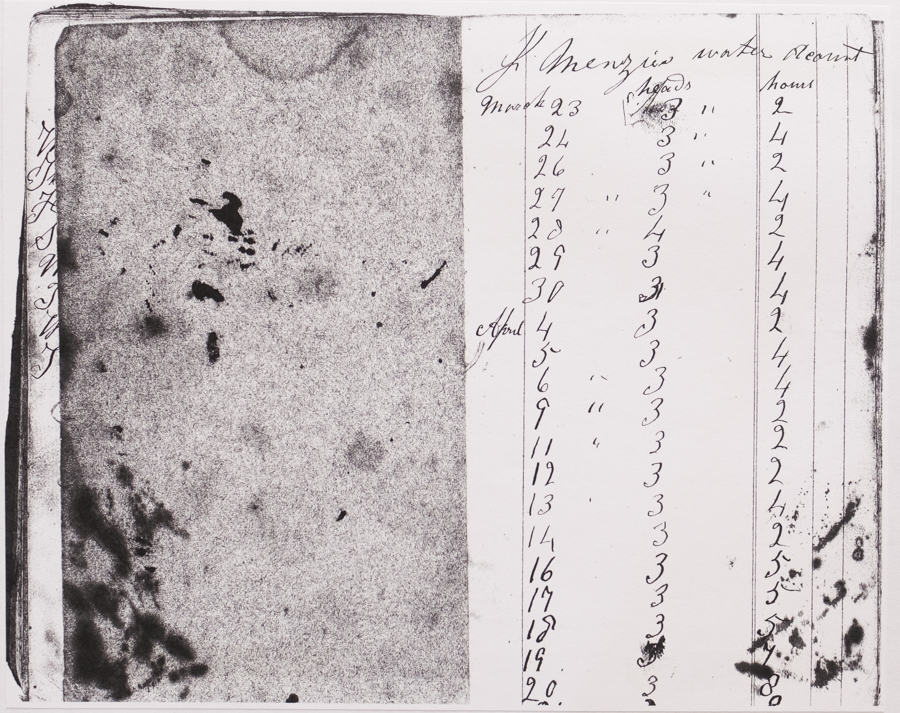 J Menzies water account
heads hours
March 23 3 " 2
24 3 " 4
26 3 " 2
27 " 3 " 4
28 " 4 2
29 3 4
30 3 4
April 4 3 2
5 3 4
6 " 3 4
9 " 3 2
11 " 3 2
12 3 2
13 ' 3 4
14 3 2
16 3 5
17 3 5
18 3 5
19 7
20 3 8